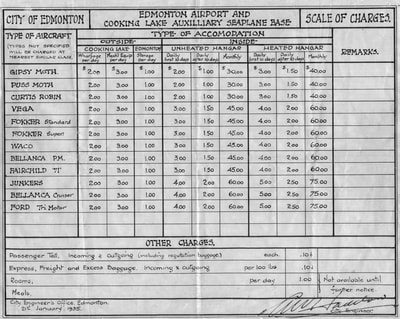 CITY OF EDMONTON
EDMONTON AIRPORT AND
COOKING LAKE AUXILLIARY SEAPLANE BASE
SCALE OF CHARGES.
TYPE OF AIRCRAFT
(TYPES NOT SPECIFIED WILL BE CHARGED AT NEAREST SIMILAR CLASS)
TYPE OF ACCOMODATION
OUTSIDE
INSIDE
REMARKS.
COOKING LAKE EDMONTON UNHEATED HANGAR HEATED HANGAR
Wharfage per day Storage per day Daily first 10 days Daily after 10 days Monthly Daily first 10 days Daily after 10 days Monthly
GIPSY MOTH $2.00 $3.00 $1.00 $2.00 $1.00 $30.00 $3.00 $1.50 $40.00
PUSS MOTH 2.00 3.00 1.00 2.00 1.00 30.00 3.00 1.50 40.00
CURTIS ROBIN 2.00 3.00 1.00 2.00 1.00 30.00 3.00 1.50 40.00
VEGA 2.00 3.00 1.00 3.00 1.50 45.00 4.00 2.00 60.00
FOKKER Standard 2.00 3.00 1.00 3.00 1.50 45.00 4.00 2.00 60.00
FOKKER Super 2.00 3.00 1.00 3.00 1.50 45.00 4.00 2.00 60.00
WACO 2.00 3.00 1.00 3.00 1.50 45.00 4.00 2.00 60.00
BELLANCA P.M. 2.00 3.00 1.00 3.00 1.50 45.00 4.00 2.00 60.00
FAIRCHILD 71 2.00 3.00 1.00 3.00 1.50 45.00 4.00 2.00 60.00
JUNKERS 2.00 3.00 1.00 4.00 2.00 60.00 5.00 2.50 75.00
BELLANCA Cruiser 2.00 3.00 1.00 4.00 2.00 60.00 5.00 2.50 75.00
FORD Tri Motor 2.00 3.00 1.00 4.00 2.00 60.00 5.00 2.50 75.00
OTHER CHARGES.
Passenger Toll, Incoming & Outgoing (including regulation baggage) each .10¢
Express, Freight and Excess Baggage, Incoming & Outgoing per 100 lbs .10¢
Rooms, per day 1.00 Not available until
Meals, further notice.
City Engineer's Office, Edmonton.
January 1935.
City Engineer